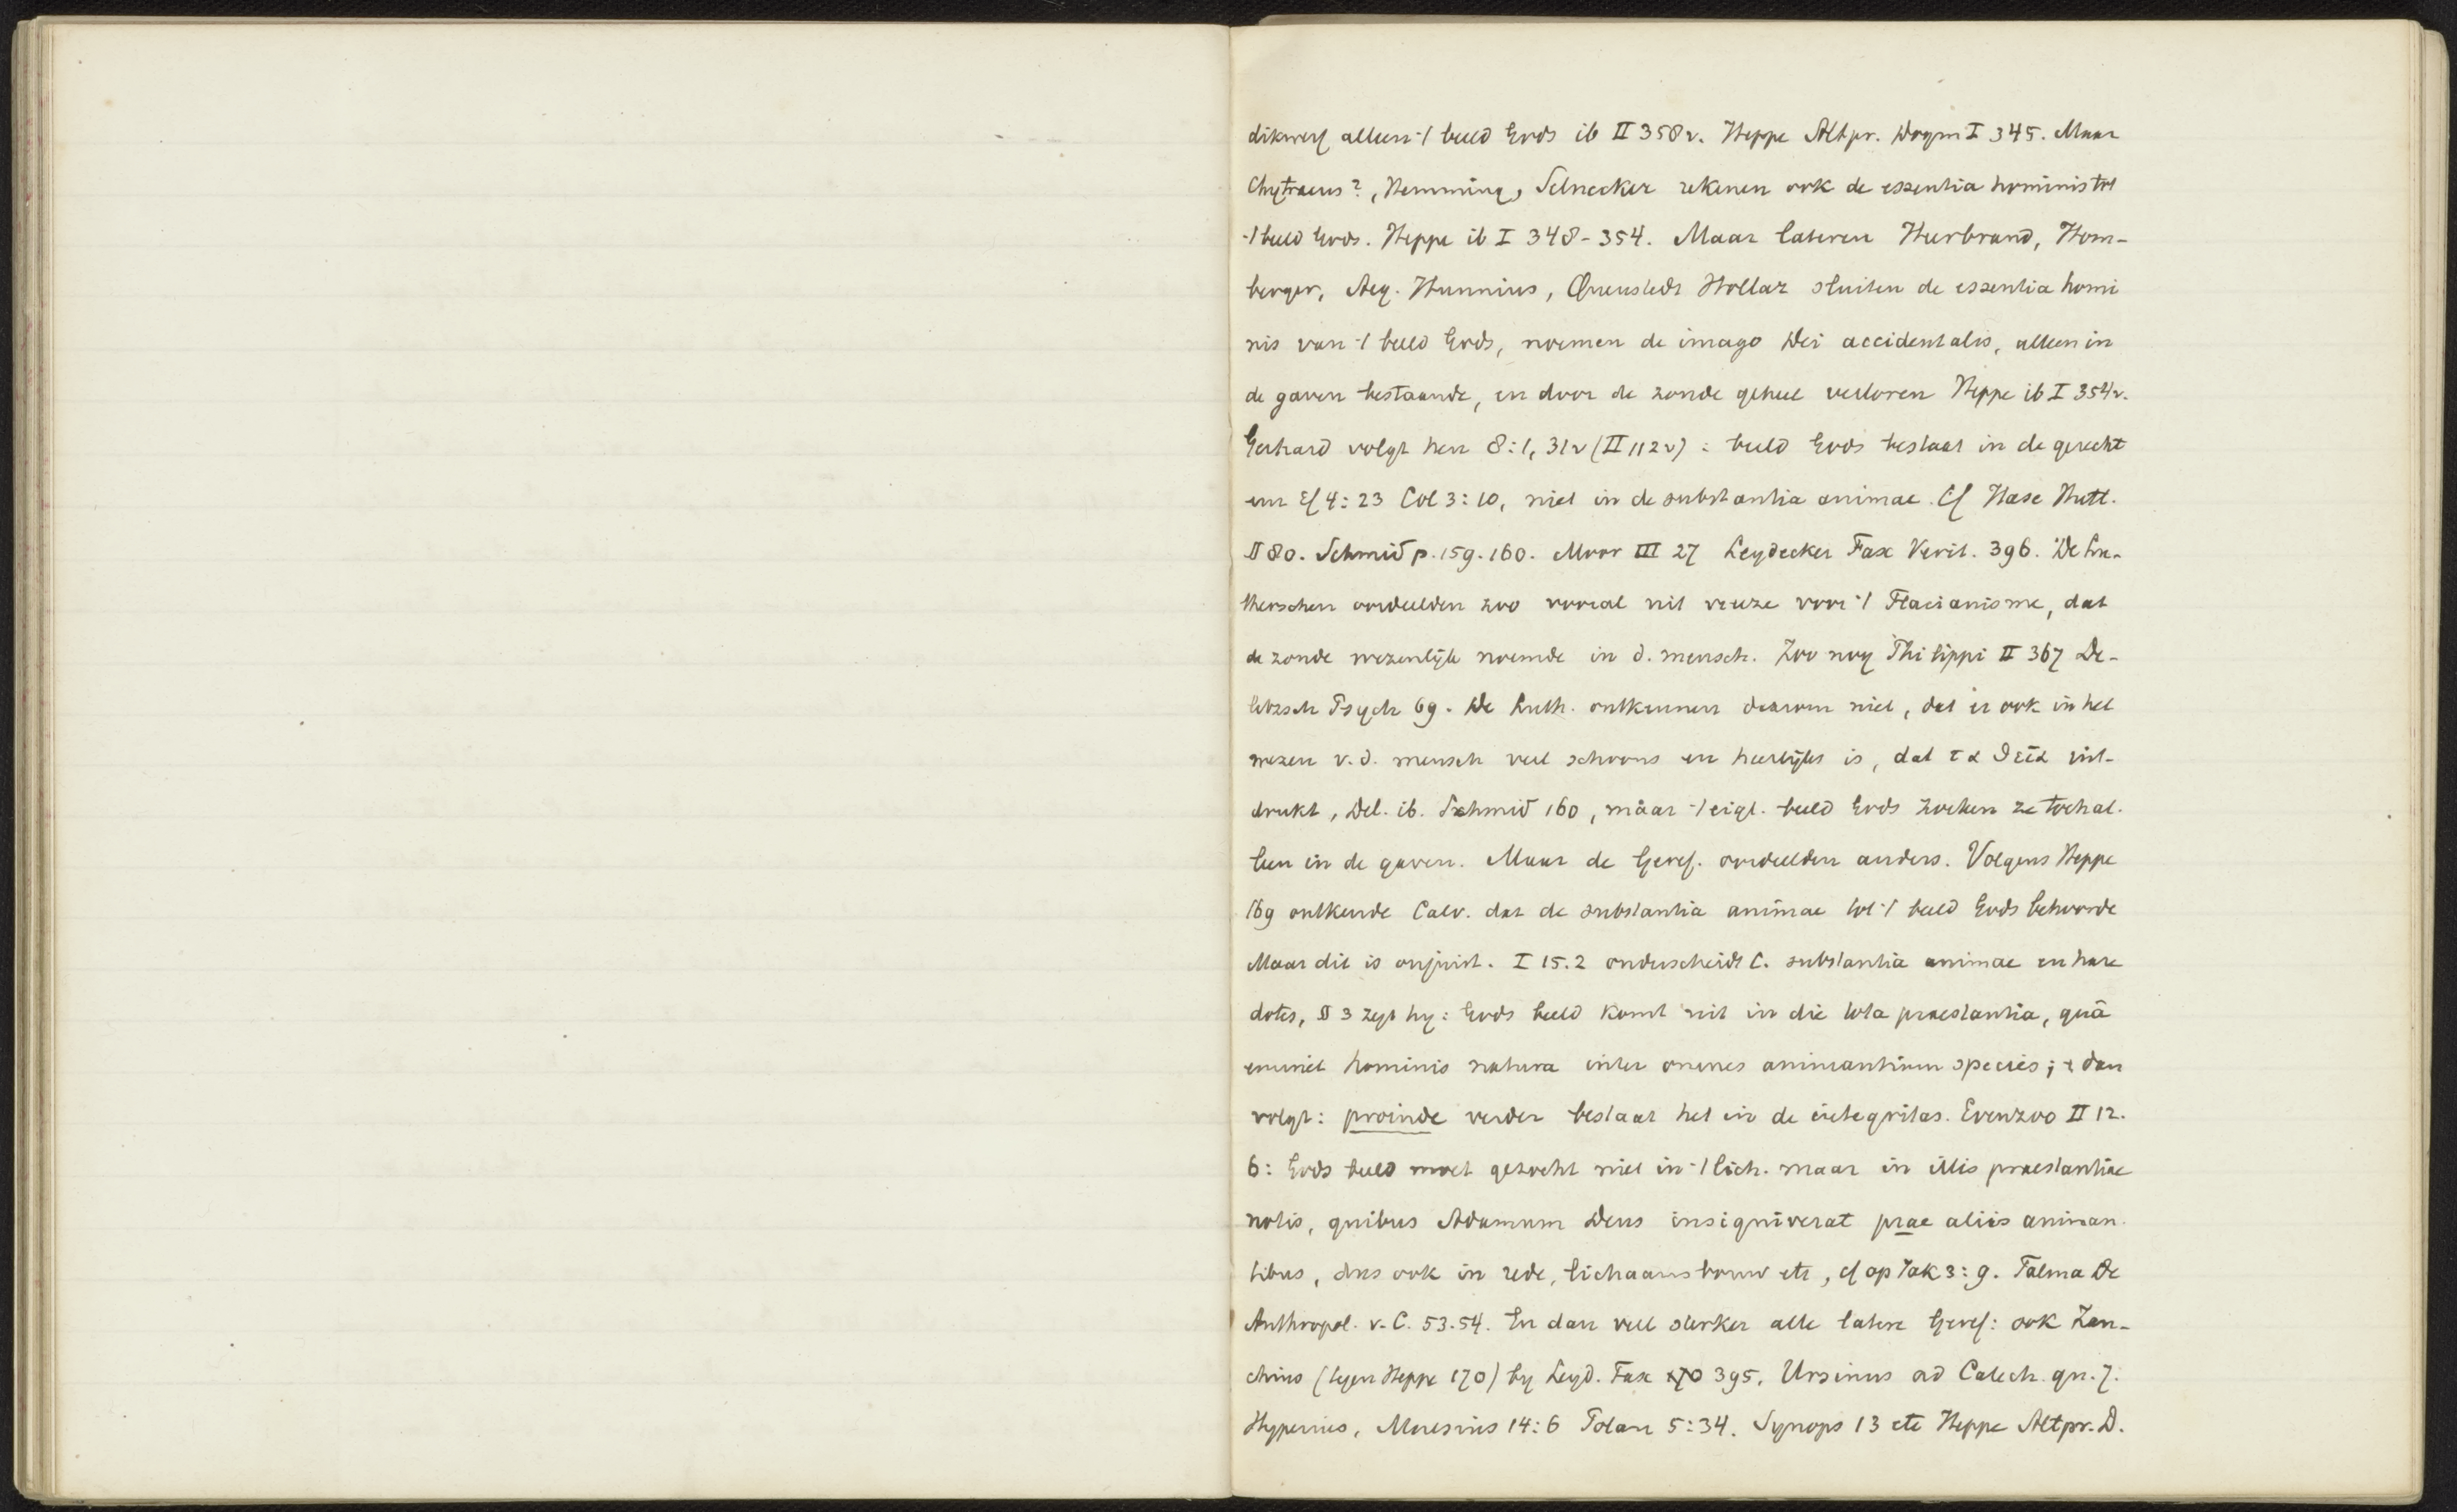 dikwerf alleen 't beeld Gods ib II 358v. Heppe Altpr. Dogm I 345. Maar
Chytraeus?, Hemming, Selnecker rekenen ook de essentia hominis tot
't beeld Gods. Heppe ib I 348-354. Maar lateren Heerbrand, Hom-
berger, Aeg. Hunnius, Quenstedt Hollaz sluiten de essentia homi
nis van 't beeld Gods, noemen de imago Dei accidentalis, alleen in
de gaven bestaande, en door de zonde geheel verloren Heppe ib I 354v.
Gerhard volgt hen 8:1, 31v (II 112v) : beeld Gods bestaat in de gerecht
enz Ef 4:23 Col 3:10, niet in de substantia animae. Cf Hase Hutt.
§ 80. Schmid p. 159. 160. Moor III 27 Leydecker Fax Verit. 396. De Lu-
therschen oordeelden zoo vooral uit vreeze voor 't Flacianisme, dat
de zonde wezenlijk noemde in d. mensch. Zoo nog Philippi II 367 De-
litzsch Psych 69. De Luth. ontkennen daarom niet, dat er ook in het
wezen v.d. mensch veel schoons en heerlijks is, dat τα θεια uit-
drukt, Del. ib. Schmid 160, maar 't eigl. beeld Gods zoeken ze toch al-
leen in de gaven. Maar de Geref. oordeelden anders. Volgens Heppe
169 ontkende Calv. dat de substantia animae tot 't beeld Gods behoorde
Maar dit is onjuist. I 15.2 onderscheidt C. substantia animae en hare
dotes, § 3 zegt hy: Gods beeld komt uit in die tota praestantia, quâ
eminet hominis natura inter omnes animantium species; + dan
volgt: proinde verder bestaat het in de integritas. Evenzoo II 12.
6: Gods beeld moet gezocht niet in 't lich. maar in illis praestantiae
notis, quibus Adamum Deus insigniverat prae aliis animan-
tibus, dus ook in rede, lichaamsbouw etc, cf op Jak 3:9. Talma De
Anthropol. v. C. 53.54. En dan veel sterker alle latere Geref: ook Zan-
chius (tegen Heppe 170) by Leyd. Fax 395, Ursinus ad Catech. qu. 7.
Hyperius, Maresius 14:6 Polan 5:34. Synops 13 etc Heppe Altpr. D.